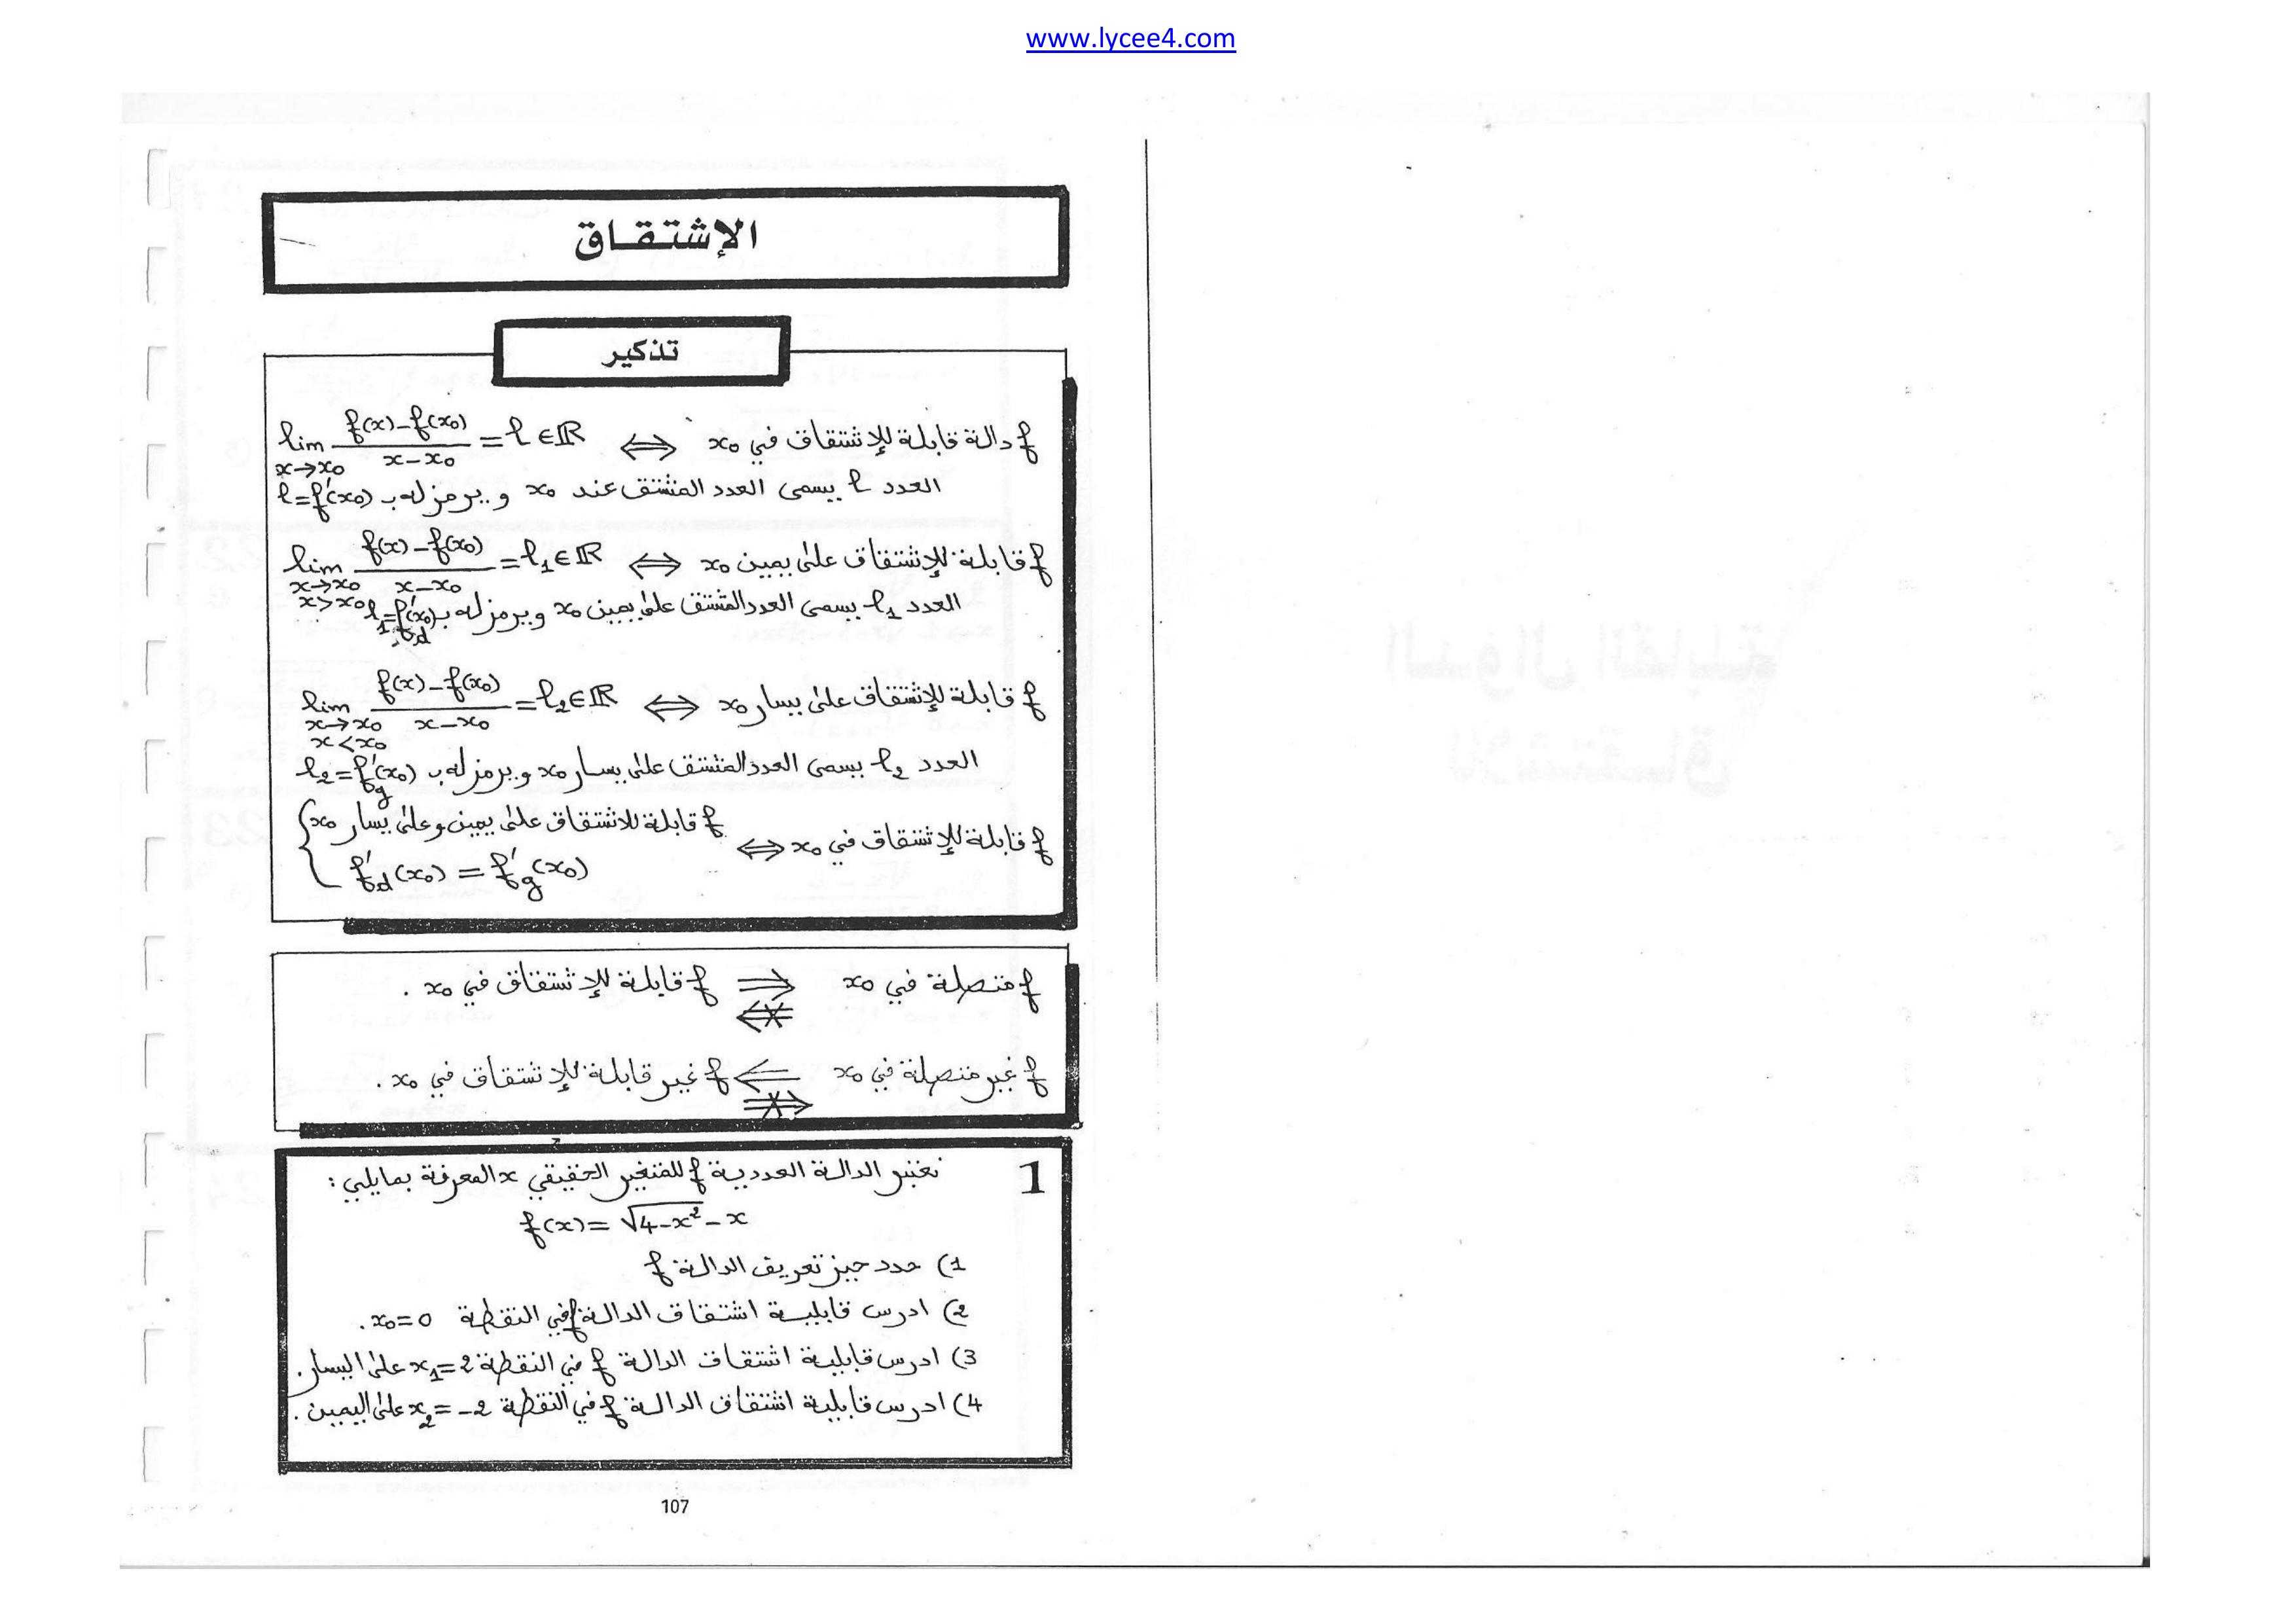 www.lycee4.com
الإشتقاق
تذكير
f دالة قابلة للإشتقاق في x₀ ⟺ lim_{x→x₀} (f(x)-f(x₀))/(x-x₀) = l ∈ ℝ
العدد l يسمى العدد المشتق عند x₀ و يرمز له بـ l=f'(x₀)
f قابلة للإشتقاق على يمين x₀ ⟺ lim_{x→x₀, x>x₀} (f(x)-f(x₀))/(x-x₀) = l₁ ∈ ℝ
العدد l₁ يسمى العدد المشتق على يمين x₀ و يرمز له بـ l₁=f'd(x₀)
f قابلة للإشتقاق على يسار x₀ ⟺ lim_{x→x₀, x<x₀} (f(x)-f(x₀))/(x-x₀) = l₂ ∈ ℝ
العدد l₂ يسمى العدد المشتق على يسار x₀ و يرمز له بـ l₂=f'g(x₀)
f قابلة للإشتقاق في x₀ ⟺ { f قابلة للاشتقاق على يمين وعلى يسار x₀
f'd(x₀) = f'g(x₀)
f متصلة في x₀ ⇒ f قابلة للإشتقاق في x₀ .
⇍
f غير متصلة في x₀ ⇐ f غير قابلة للإشتقاق في x₀ .
⇏
1 نعتبر الدالة العددية f للمتغير الحقيقي x المعرفة بمايلي :
f(x) = √(4-x²) - x
1) حدد حيز تعريف الدالة f
2) ادرس قابلية اشتقاق الدالة f في النقطة x₀=0 .
3) ادرس قابلية اشتقاق الدالة f في النقطة x₁=2 على اليسار .
4) ادرس قابلية اشتقاق الدالة f في النقطة x₂=-2 على اليمين .
107